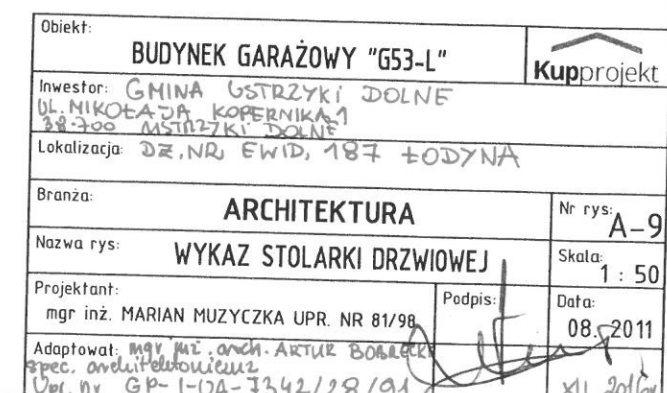 Obiekt:
BUDYNEK GARAŻOWY "G53-L"
Kupprojekt
Inwestor: GMINA USTRZYKI DOLNE
UL. MIKOŁAJA KOPERNIKA 1
38-700 USTRZYKI DOLNE
Lokalizacja: DZ. NR EWID. 187 ŁODYNA
Branża:
ARCHITEKTURA
Nr rys:
A-9
Nazwa rys:
WYKAZ STOLARKI DRZWIOWEJ
Skala:
1 : 50
Projektant:
mgr inż. MARIAN MUZYCZKA UPR. NR 81/98
Podpis:
Data:
08.2011
Adaptował: mgr inż. arch. ARTUR BOBRECKI
spec. architektoniczna
Upr. nr GP-I-UA-7342/28/91
XII 2016r